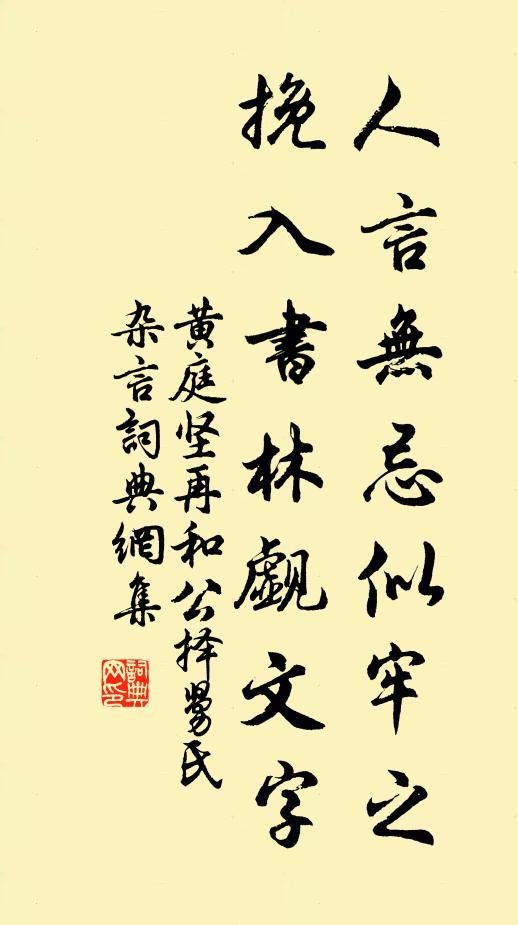 人言無忌似牢之
挽入書林覷文字
黄庭坚再和公择舅氏
杂言詞典網集
詞典
网印